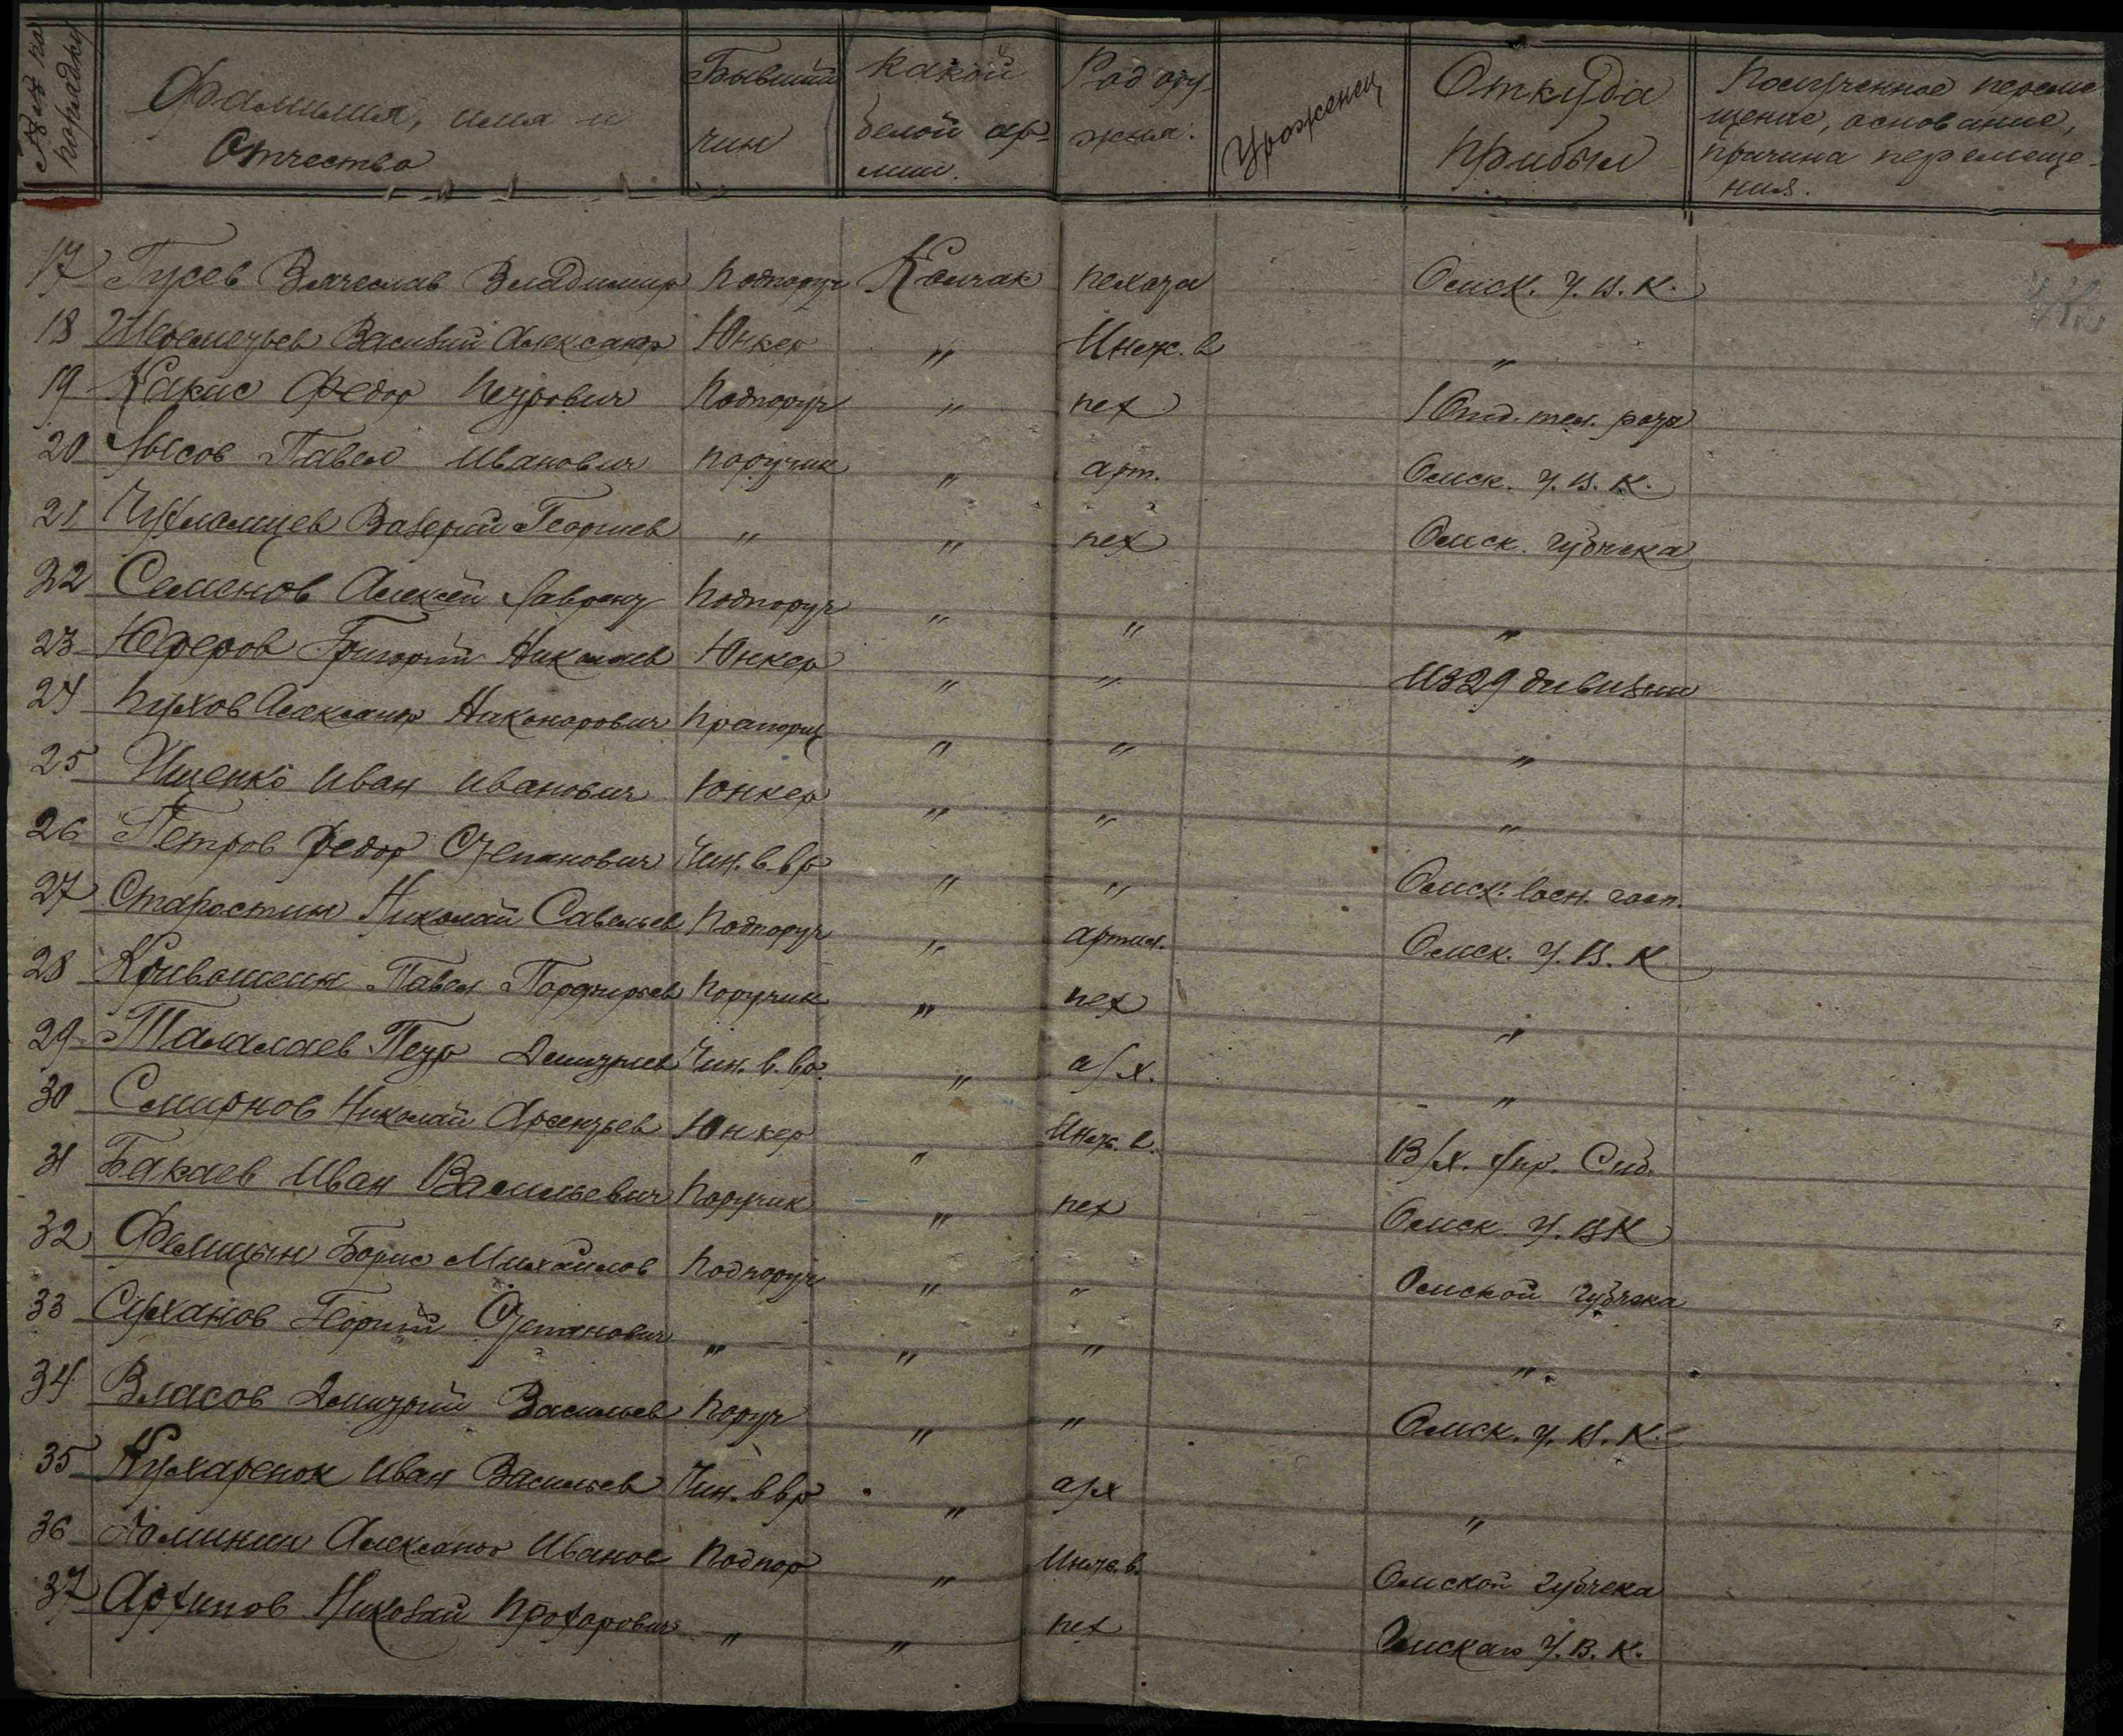 №№ по порядку
Фамилия, имя и Отчество
Бывший чин
какой белой армии.
Род оружия:
Уроженец
Откуда прибыл
Полученное перемещение, основание, причина перемещения.
17 Гусев Вячеслав Владимир Подпоруч Колчак пехота Омск. У.В.К.
18 Шереметьев Василий Александр Юнкер " Инж. в "
19 Какис Федор Петрович Подпоруч " пех 1 Отд. тел. рота
20 Лысов Павел Иванович поручик " арт. Омск. У.В.К.
21 Чухломцев Валерий Георгиев " " пех Омск. Губчека
22 Семенов Алексей Лаврент Подпоруч " " "
23 Юферов Григорий Николаев Юнкер " " Из 29 дивизии
24 Пухов Александр Никонорович Прапорщ " " "
25 Ищенко Иван Иванович Юнкер " " "
26 Петров Федор Степанович Чин. в. вр " " Омск. воен. госп.
27 Старостин Николай Савельев Подпоруч " артил. Омск. У.В.К
28 Кривошеин Павел Порфирьев Поручик " пех "
29 Таламаев Петр Дмитриев Чин. в. вр. " а/х. "
30 Смирнов Николай Арсентьев Юнкер " Инж. в. В/х. Упр. Сиб.
31 Бакаев Иван Васильевич Поручик " пех Омск. У.ВК
32 Фелицын Борис Михайлов Подпоруч " " Омской Губчека
33 Суханов Георгий Степанович " " " "
34 Власов Дмитрий Васильев Поруч " " Омск. У.В.К.
35 Кухаренок Иван Васильев Чин. в вр " а/х "
36 Александр Иванов Подпор " Инж. в. Омской Губчека
37 Архипов Николай Прохорович " " пех Омскаю У.В.К.